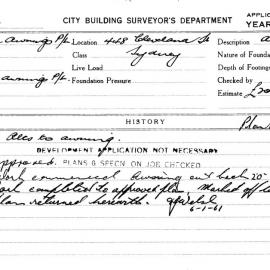 CITY BUILDING SURVEYOR'S DEPARTMENT
APPLIC
YEAR
Awning P/L. Location 448 Cleveland St Description
Class Sydney Nature of Founda
Live Load Depth of Footings
Awning P/L. Foundation Pressure Checked by
Estimate £
HISTORY
Plan
Alts to awning.
DEVELOPMENT APPLICATION NOT NECESSARY
Approved. PLANS & SPECN ON JOB CHECKED
Work commenced awning cut back 20"
Work completed to approved plan. Marked off
Plan returned herewith.
6-1-61